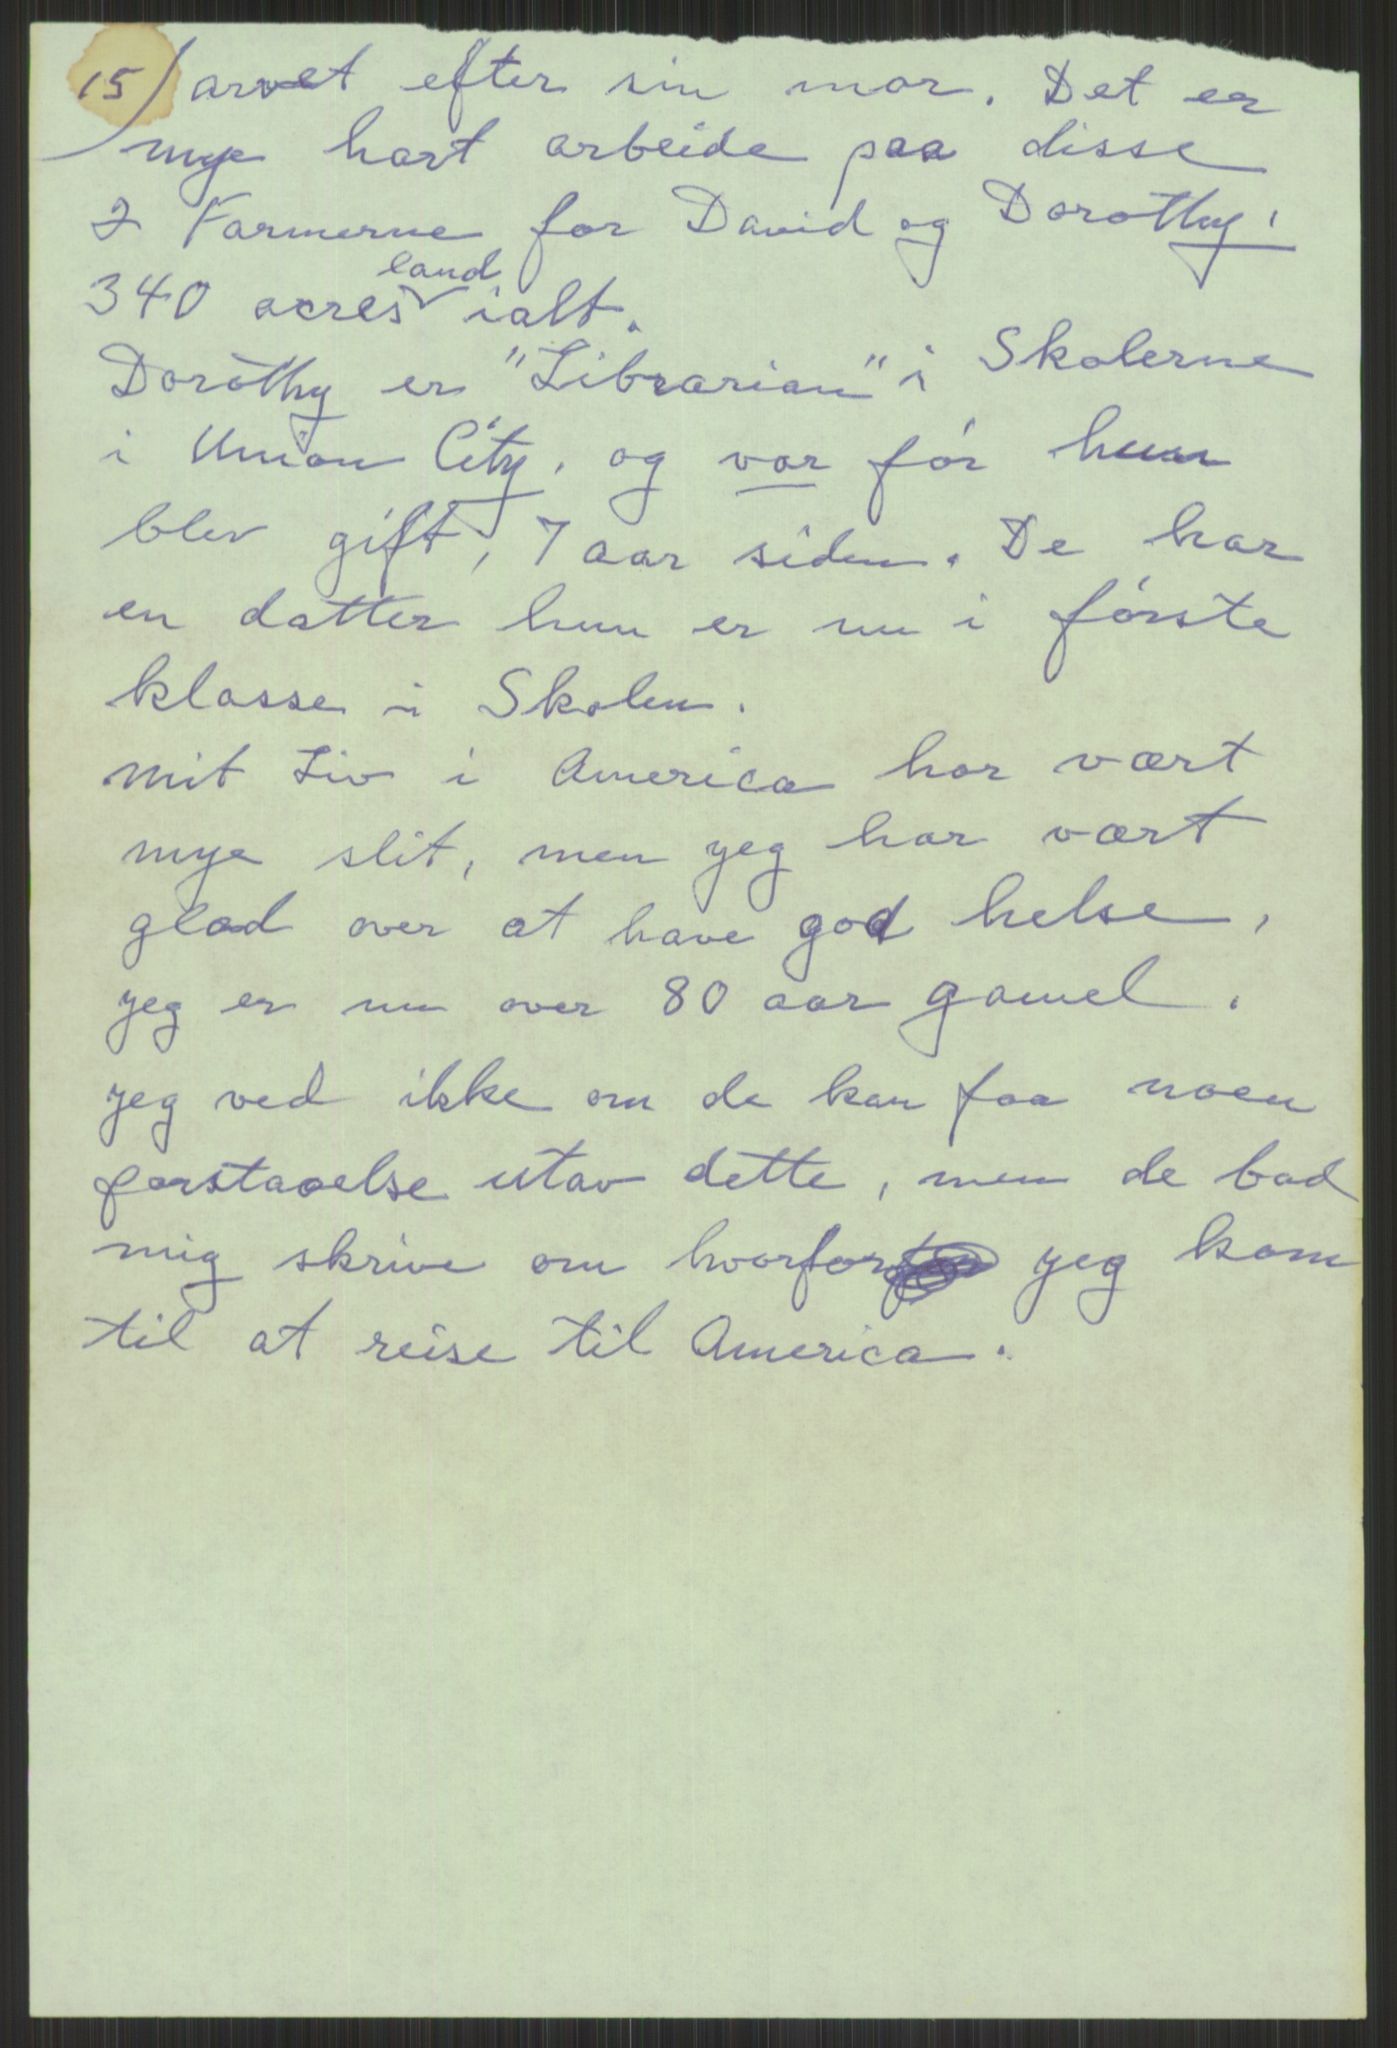 15/ arvet efter sin mor. Det er
mye hart arbeide paa disse
2 Farmerne for David og Dorothy,
340 acres land ialt.
Dorothy er "Librarian" i Skolerne
i Union City, og var før hun
blev gift, 7 aar siden. De har
en datter hun er nu i første
klasse i Skolen.
mit Liv i America har vært
mye slit, men jeg har vært
glad over at have god helse,
jeg er nu over 80 aar gamel.
jeg ved ikke om de kan faa noen
forstaaelse utav dette, men de bad
mig skrive om hvorfor jeg kom
til at reise til America.